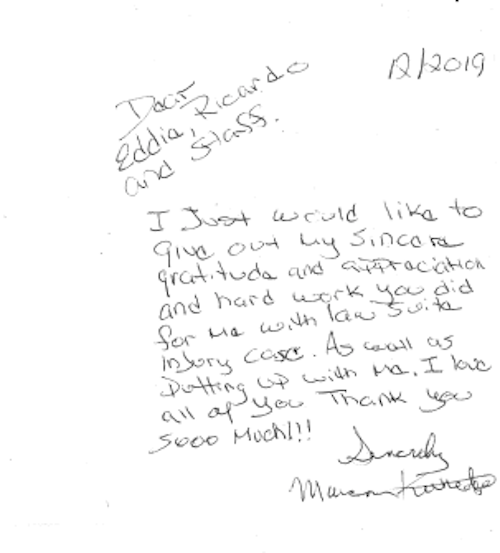 12/2019
Dear
Eddie, Ricardo
and Staff.
I Just would like to
give out my sincere
gratitude and appreciation
and hard work you did
for me with law suite
Injury case. As well as
putting up with me. I love
all of you Thank you
sooo Much!!!
Sincerely